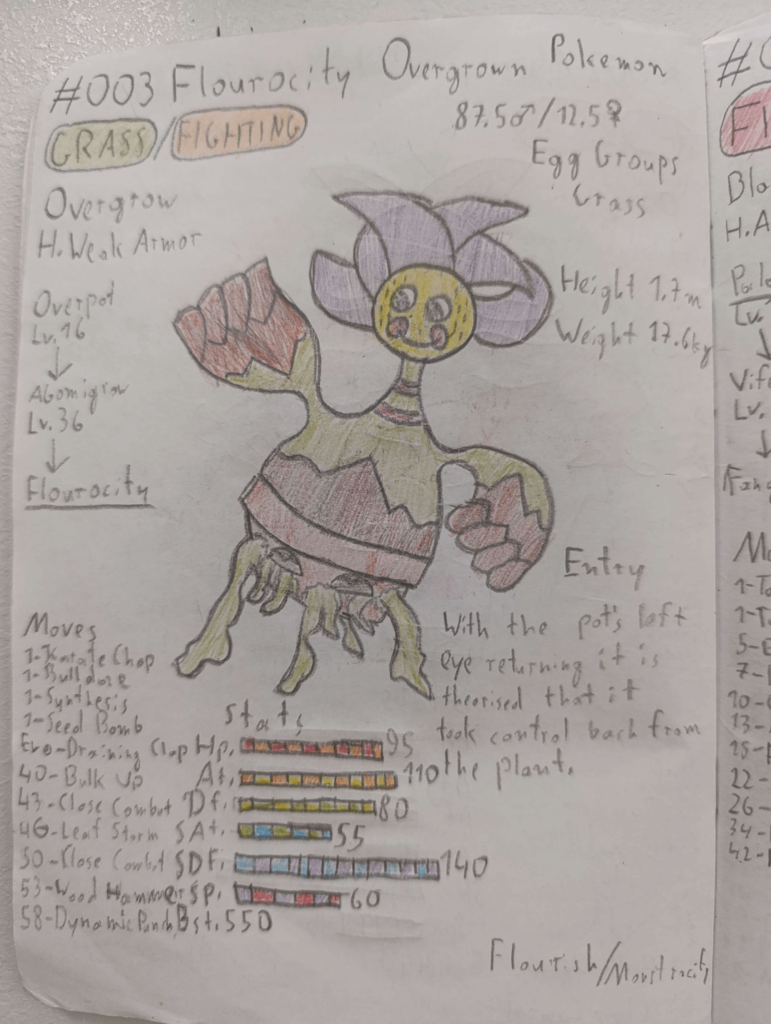 #003 Flourocity Overgrown Pokemon
GRASS/FIGHTING
87.5♂/12.5♀
Egg Groups
Grass
Overgrow
H. Weak Armor
Height 1.7m
Weight 17.6kg
Overpot
Lv. 16
↓
Abomigrow
Lv. 36
↓
Flourocity
Entry
With the pot's left
eye returning it is
theorised that it
took control back from
the plant.
Moves
1-Karate Chop
1-Bulldoze
1-Synthesis
1-Seed Bomb
Evo-Draining Clap
40-Bulk Up
43-Close Combat
46-Leaf Storm
50-Close Combat
53-Wood Hammer
58-Dynamic Punch
Stats
Hp. 95
At. 110
Df. 80
SAt. 55
SDf. 140
SP. 60
Bst. 550
Flourish/Monstrocity
#0
FI
Bla
H.A
Lv.
↓
Vif
Lv.
↓
Fang
Mo
1-Ta
5-
7-
10-
13-
22-
26-
34-
42-